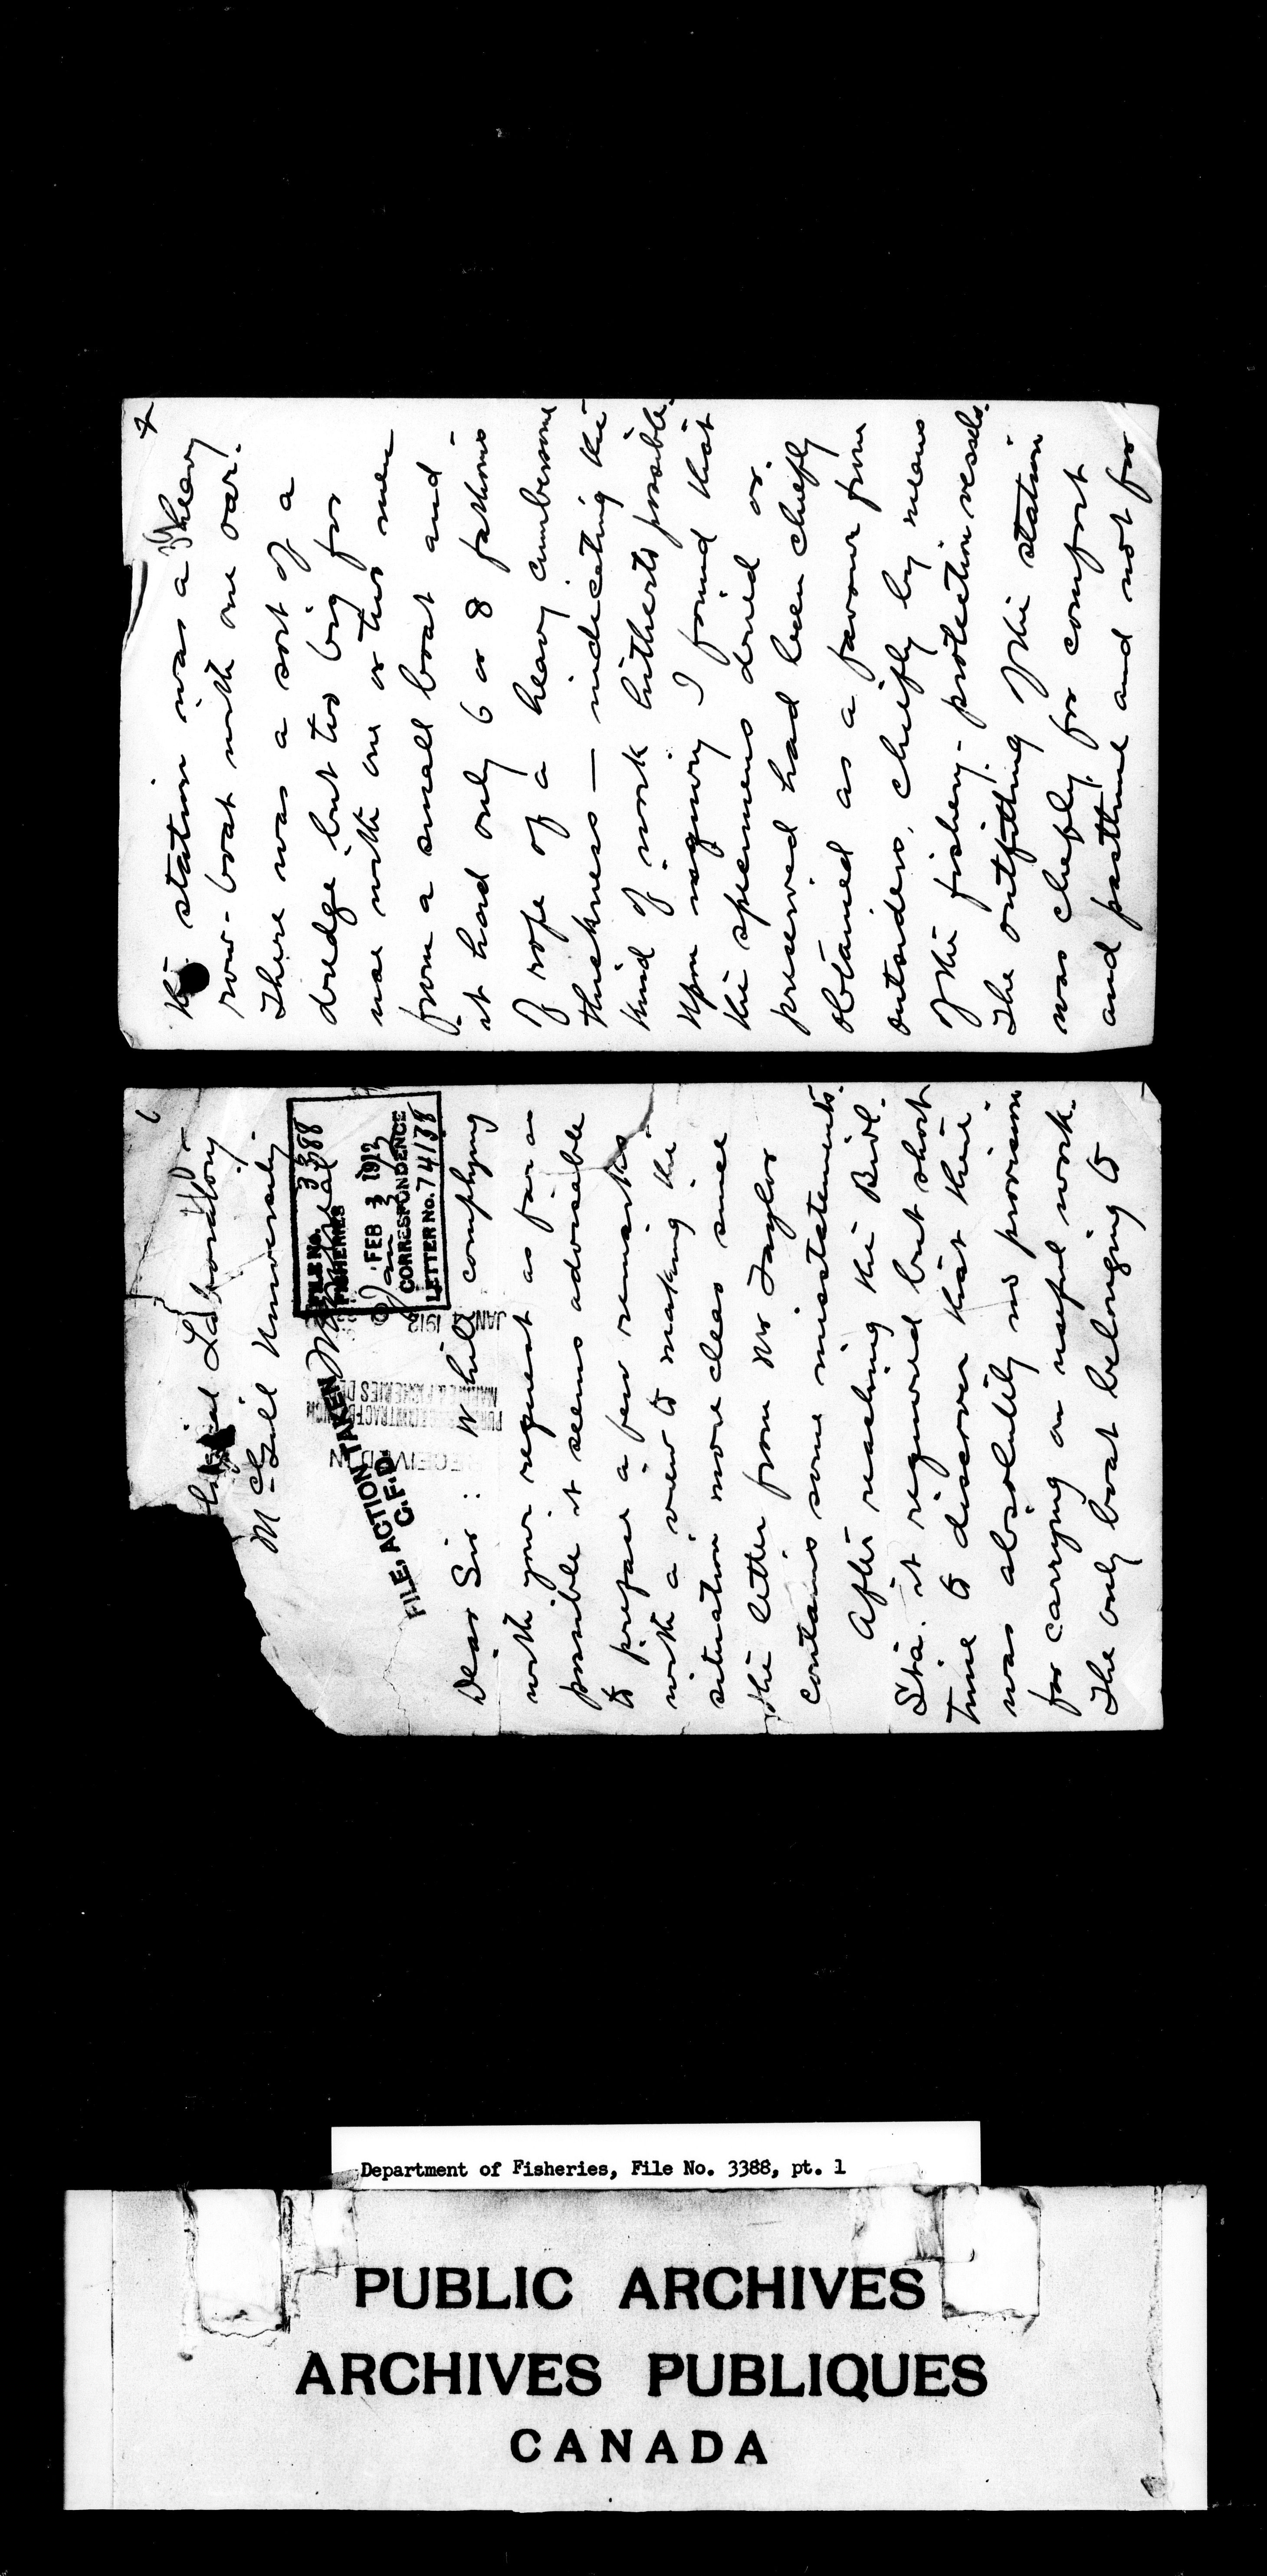 Laboratory
McGill University
Montreal
FILE No. 3388
FISHERIES
FEB 3 1912
CORRESPONDENCE
LETTER No. 74138
FILE, ACTION TAKEN
C.F.D
JAN 1912
Dear Sir: While complying
with your request as far as
possible it seems advisable
to preface a few remarks
with a view to making the
situation more clear since
the letter from Mr Taylor
contains some misstatements.
After reaching the Biol.
Sta. it required but short
time to discover that there
was absolutely no provision
for carrying on useful work.
The only boat belonging to
2
the station was a heavy
row-boat with one oar.
There was a sort of a
dredge but too big for
use with one or two men
from a small boat and
it had only 6 or 8 fathoms
of rope of a heavy cumbersome
thickness — indicating the
kind of work hitherto possible.
Upon inquiry I found that
the specimens dried or
preserved had been chiefly
obtained as a favour from
outsiders, chiefly by means
of the fishery-protection vessels.
The outfitting of the station
was chiefly for comfort
and pasttime and not for
Department of Fisheries, File No. 3388, pt. 1
PUBLIC ARCHIVES
ARCHIVES PUBLIQUES
CANADA